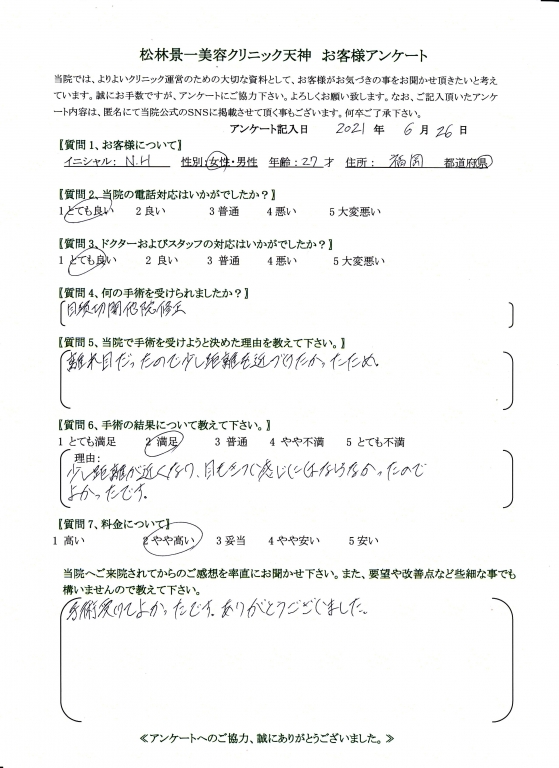 松林景一美容クリニック天神 お客様アンケート
当院では、よりよいクリニック運営のための大切な資料として、お客様がお気づきの事をお聞かせ頂きたいと考え
ています。誠にお手数ですが、アンケートにご協力下さい。よろしくお願い致します。なお、ご記入頂いたアンケ
ート内容は、匿名にて当院公式のSNSに掲載させて頂く事もございます。何卒ご了承下さい。
アンケート記入日 2021 年 6 月 26 日
【質問1、お客様について】
イニシャル: N.H 性別:女性・男性 年齢:27才 住所: 福岡 都道府県
【質問2、当院の電話対応はいかがでしたか?】
1 とても良い 2 良い 3 普通 4 悪い 5 大変悪い
【質問3、ドクターおよびスタッフの対応はいかがでしたか?】
1 とても良い 2 良い 3 普通 4 悪い 5 大変悪い
【質問4、何の手術を受けられましたか?】
目頭切開他院修正
【質問5、当院で手術を受けようと決めた理由を教えて下さい。】
離れ目だったので少し距離を近づけたかったため。
【質問6、手術の結果について教えて下さい。】
1 とても満足 2 満足 3 普通 4 やや不満 5 とても不満
理由:
少し距離が近くなり、目もきつい感じにはならなかったので
よかったです。
【質問7、料金について】
1 高い 2 やや高い 3 妥当 4 やや安い 5 安い
当院へご来院されてからのご感想を率直にお聞かせ下さい。また、要望や改善点など些細な事でも
構いませんので教えて下さい。
手術受けてよかったです。ありがとうございました。
≪アンケートへのご協力、誠にありがとうございました。≫